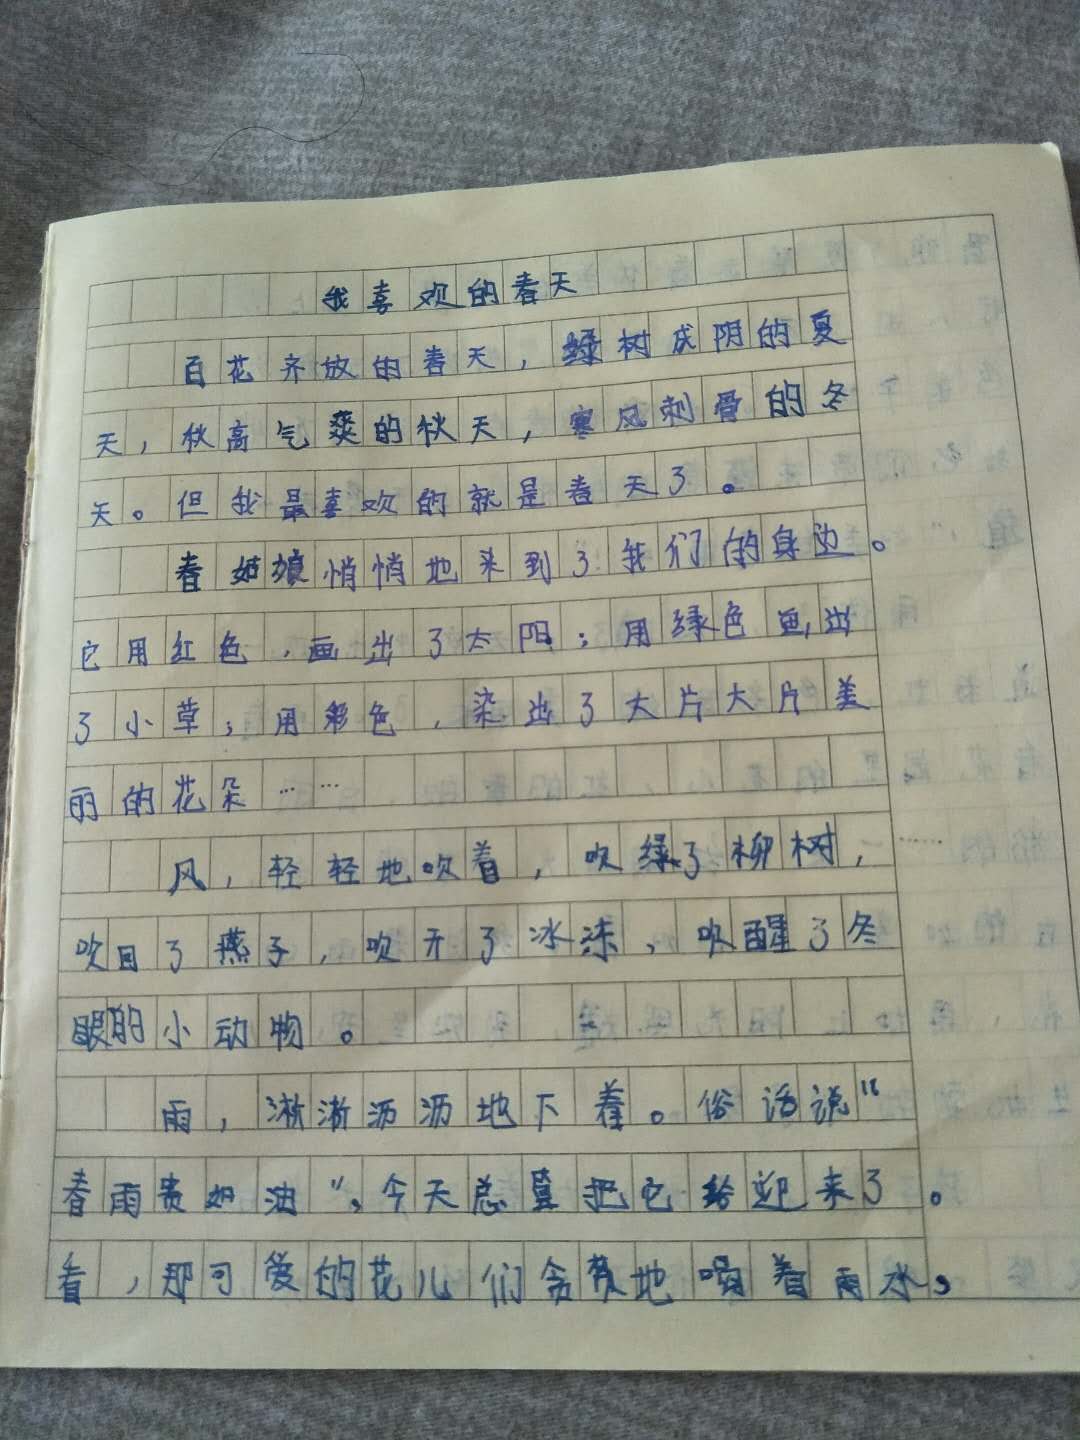 我喜欢的春天
百花齐放的春天，绿树成阴的夏
天，秋高气爽的秋天，寒风刺骨的冬
天。但我最喜欢的就是春天了。
春姑娘悄悄地来到了我们的身边。
它用红色，画出了太阳；用绿色画出
了小草；用彩色，染出了大片大片美
丽的花朵……
风，轻轻地吹着，吹绿了柳树，
吹回了燕子，吹开了冰冻，吹醒了冬
眼的小动物。
雨，淅淅沥沥地下着。俗话说“
春雨贵如油”，今天总算把它给迎来了。
看，那可爱的花儿们贪婪地喝着雨水，